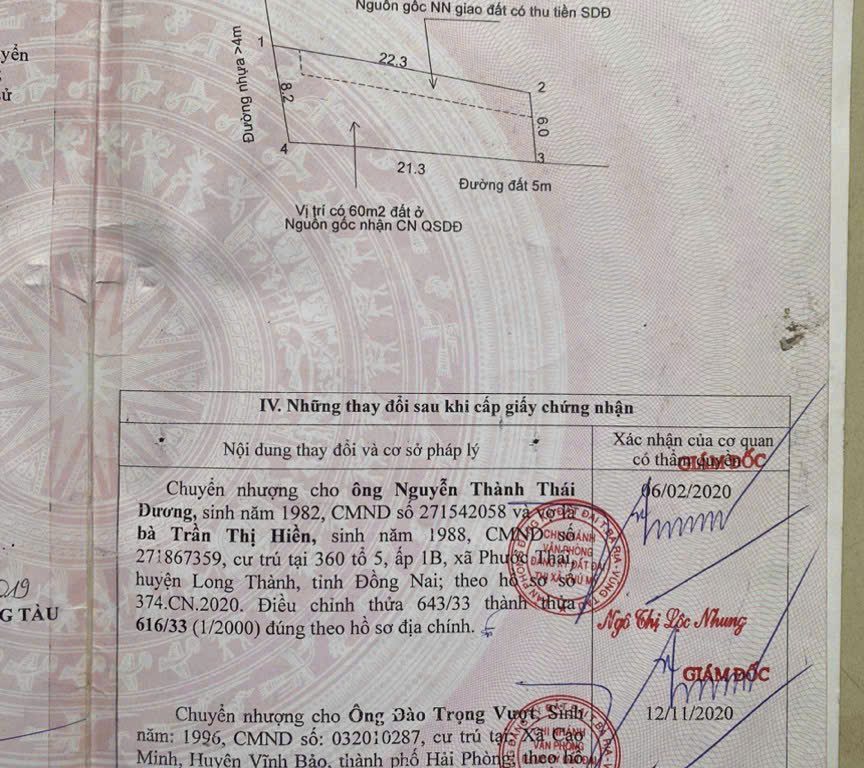 Nguồn gốc NN giao đất có thu tiền SDĐ
yển
ử
1
22.3
2
Đường nhựa >4m
8.2
6.0
4
21.3
3
Đường đất 5m
Vị trí có 60m2 đất ở
Nguồn gốc nhận CN QSDĐ
IV. Những thay đổi sau khi cấp giấy chứng nhận
Nội dung thay đổi và cơ sở pháp lý
Xác nhận của cơ quan
có thẩm quyền
GIÁM ĐỐC
Chuyển nhượng cho ông Nguyễn Thành Thái
Dương, sinh năm 1982, CMND số 271542058 và vợ là
bà Trần Thị Hiền, sinh năm 1988, CMND số
271867359, cư trú tại 360 tổ 5, ấp 1B, xã Phước Thái,
huyện Long Thành, tỉnh Đồng Nai; theo hồ sơ số
374.CN.2020. Điều chỉnh thửa 643/33 thành thửa
616/33 (1/2000) đúng theo hồ sơ địa chính.
06/02/2020
CHI NHÁNH
VĂN PHÒNG
ĐĂNG KÝ ĐẤT ĐAI
THỊ XÃ PHÚ MỸ
Ngô Thị Lộc Nhung
2019
G TÀU
GIÁM ĐỐC
Chuyển nhượng cho Ông Đào Trọng Vượt, Sinh
năm: 1996, CMND số: 032010287, cư trú tại: Xã Cao
Minh, Huyện Vĩnh Bảo, thành phố Hải Phòng; theo hồ
12/11/2020
CHI NHÁNH
VĂN PHÒNG